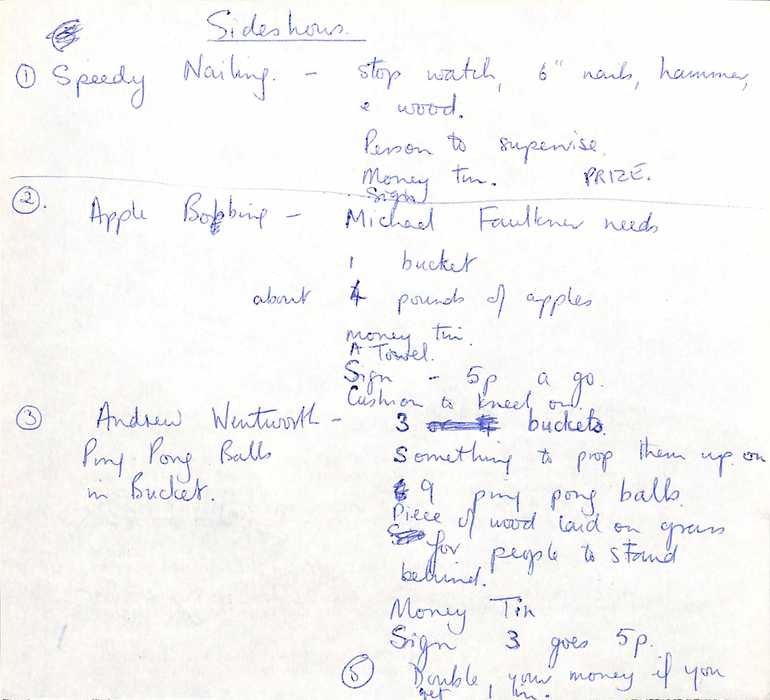 Sideshows.
① Speedy Nailing. - stop watch, 6" nails, hammer,
e wood.
Person to supervise.
Money tin. PRIZE.
Sign
②. Apple Bobbing - Michael Faulkner needs
1 bucket
about 4 pounds of apples
money tin.
A Towel.
Sign - 5p a go.
Cushion to kneel on.
③ Andrew Wentworth - 3 buckets
Ping Pong Balls Something to prop them up on
in Bucket. 9 ping pong balls.
Piece of wood laid on grass
for people to stand
behind.
Money Tin
Sign 3 goes 5p.
⑤ Double, your money if you
get 1 in.